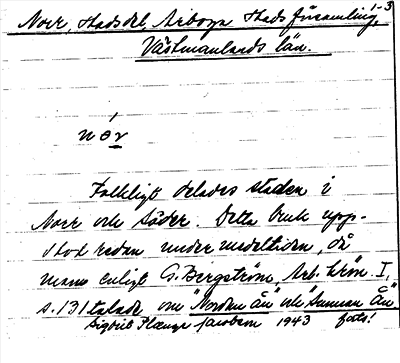 Norr, Stadsdel, Arboga Stadsförsamling, 1-3
Västmanlands län.
nór
Folkligt delades staden i
Norr och Söder. Detta bruk upp-
stod redan under medeltiden, då
man enligt G. Bergström, Arb. krön. I,
s. 131 talade om "Nordan ån" och "Sunnan ån"
Sigbrit Plænge Jacobson 1943 fots!